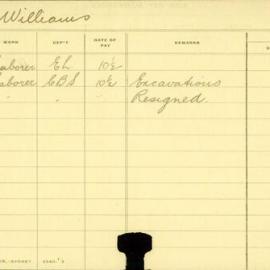 Williams
WORK DEP'T RATE OF PAY REMARKS
Laborer EL 10½
Laborer CBS 10½ Excavations
" " Resigned